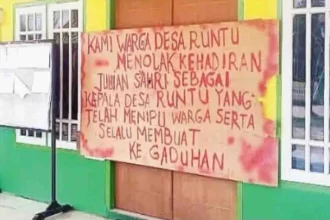 KAMI WARGA DESA RUNTU
MENOLAK KEHADIRAN
JULIAN SAHRI SEBAGAI
KEPALA DESA RUNTU YANG
TELAH MENIPU WARGA SERTA
SELALU MEMBUAT
KE GADUHAN